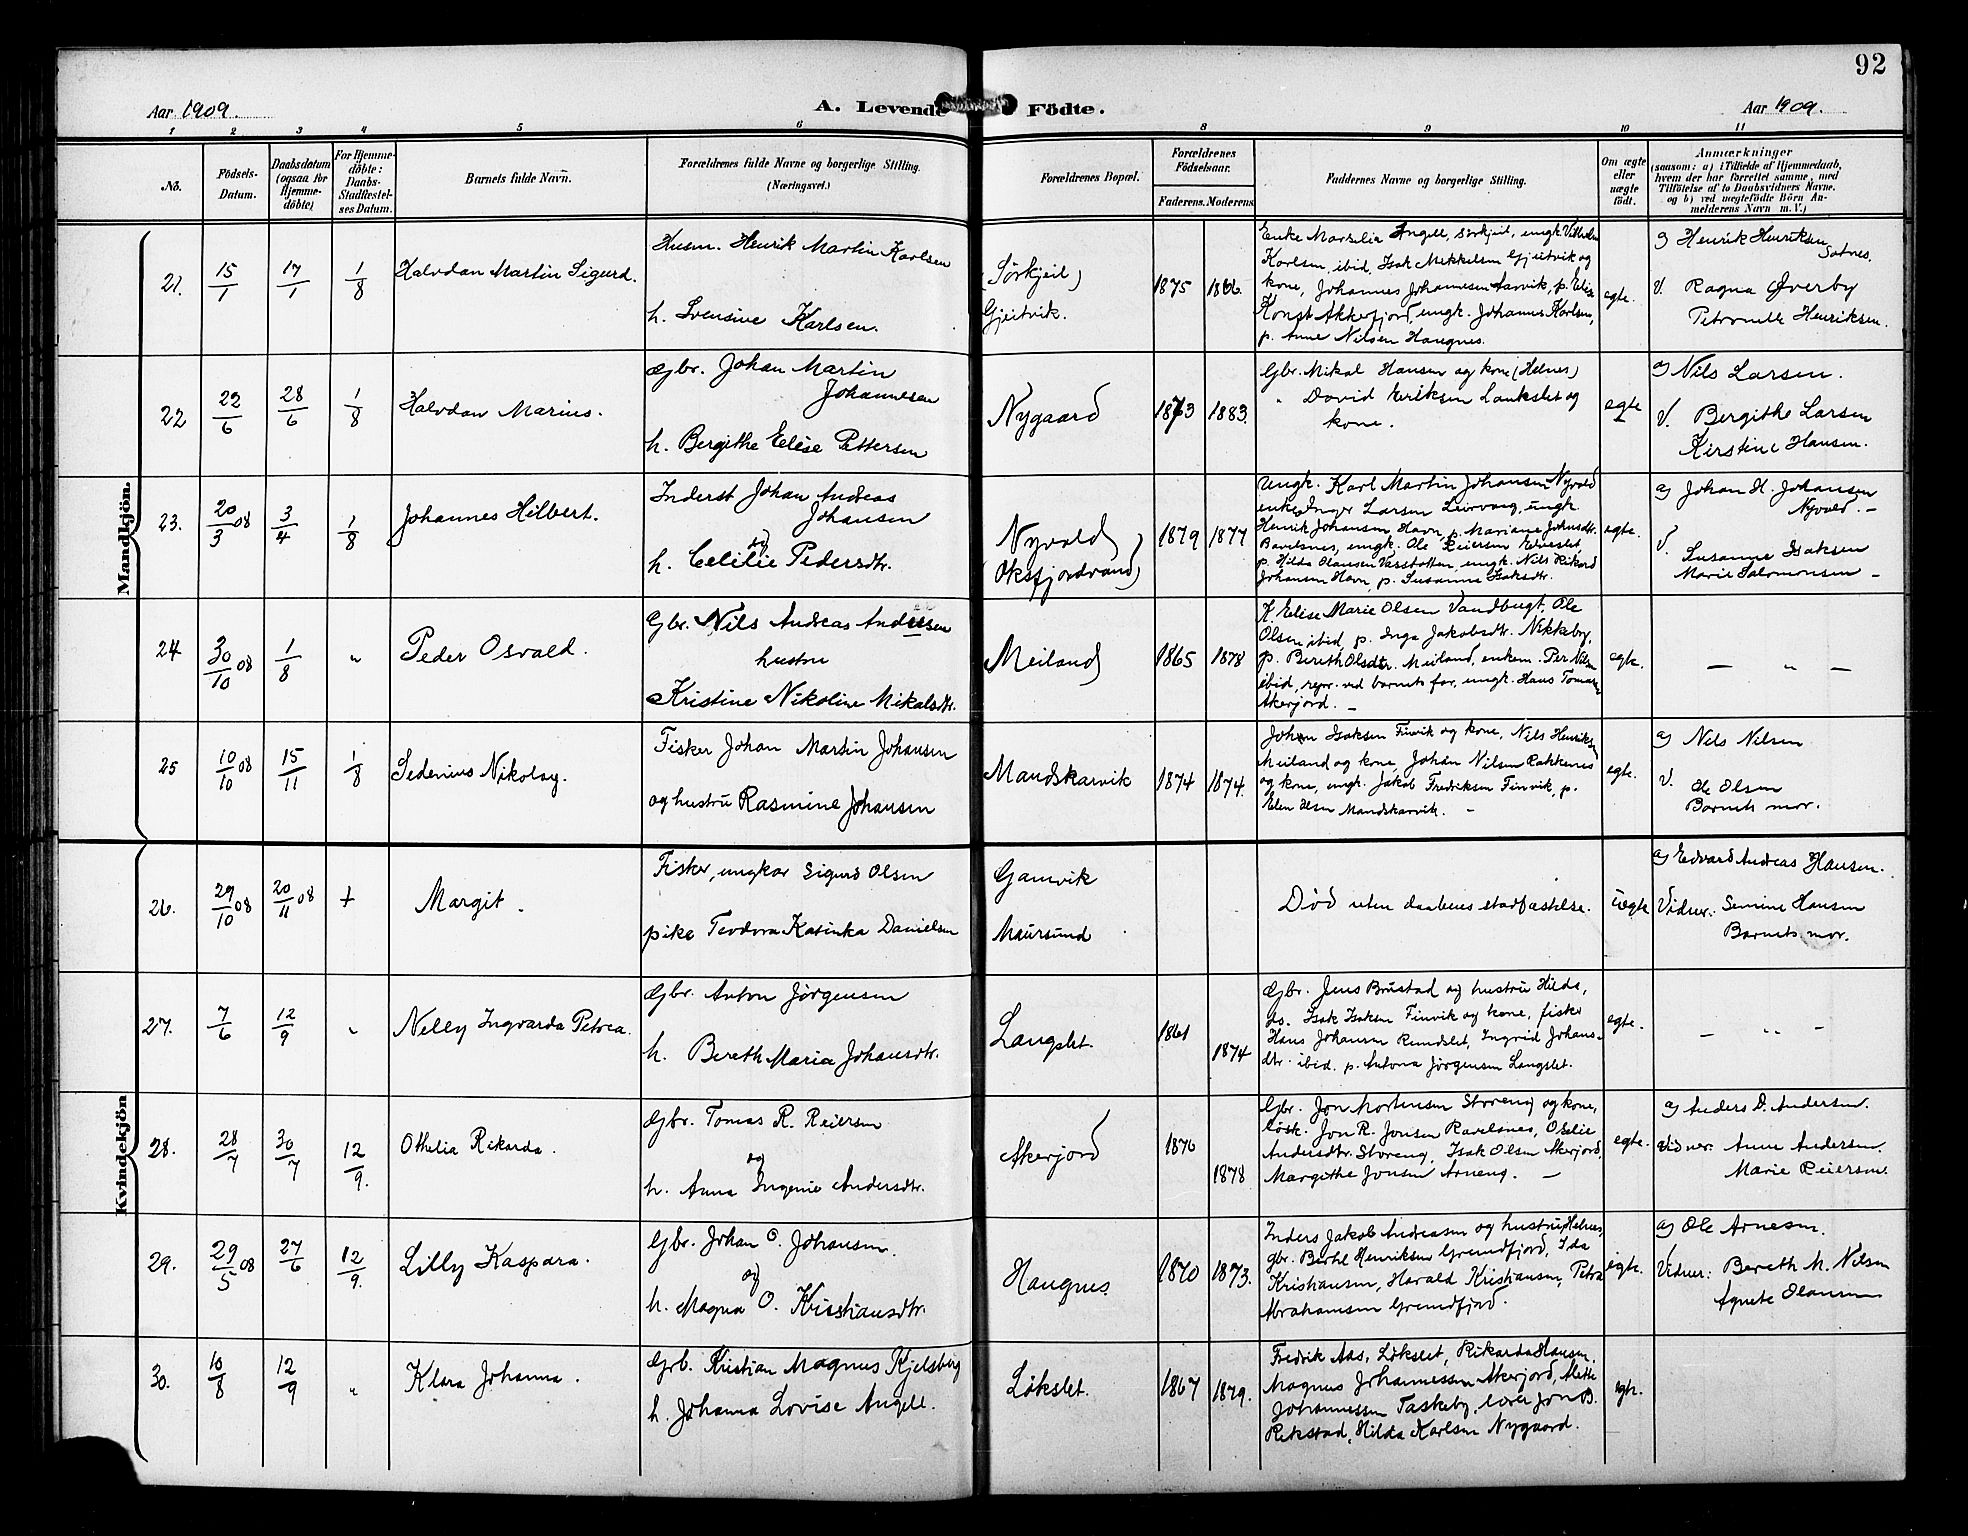 92
Aar 1909.
A. Levende Födte.
Aar 1909.
1 2 3 4 5 6 8 9 10 11
No.
Födsels-Datum.
Daabsdatum (ogsaa for Hjemme-döbte)
For Hjemme-döbte: Daabs-Stadfæstel-ses Datum.
Barnets fulde Navn.
Forældrenes fulde Navne og borgerlige Stilling.
(Næringsvei.)
Forældrenes Bopæl.
Forældrenes Födselsaar.
Faderens. Moderens
Faddernes Navne og borgerlige Stilling.
Om ægte eller uægte födt.
Anmærkninger
(saasom: a) i Tilfælde af Hjemmedaab,
hvem der har forrettet samme, med
Tilföielse af to Daabsvidners Navne.
og b) ved uægtefödte Börn An-
melderens Navn m. V.)
Mandkjön.
21. 15/1 17/1 1/8
Halvdan Martin Sigurd.
Husm. Henrik Martin Karlsen
h. Svensive Karlsen.
(Sörkjeil)
Gjeitvik.
1875 1866.
Enke Marselia Angell, sörkjeil, ungk. Vilhelm
Karlsen, ibid, Isak Mekkelsen Gjeitvik og
kone, Johannes Johannesen Aarvik, p. Elise
Konst Akkerfjord, ungk. Johannes Karlsen,
p. Anne Nilsen Haugnes.
egte.
a) Henrik Henriksen
V. Ragna Øverby
Petronelle Henriksen.
22 22/6 28/6 1/8
Halvdan Marius.
Gbr. Johan Martin
Johannesen
h. Bergithe Elise Pettersen
Nygaard
1873 1883.
Gbr. Mikal Hansen og kone (Helnes)
" David Eriksen Lankslet og
kone.
egte
a) Nils Larsen.
V. Bergithe Larsen
Kirstine Hansen.
23. 20/3 08 3/4 1/8
Johannes Hilbert.
Inderst Johan Andreas
Johansen
og
h. Celilie Pedersdtr.
Nyvold
(Oksfjordvand)
1879 1877
Ungk. Karl Martin Johansen Nyvold
enke Inger Larsen Leirvaag, ungk.
Henrik Johansen Havn, p. Mariane Johnsdtr.
Ravelsnes, ungk. Ole Reiersen Elveslet,
p. Hilda Olausen Vasstotten, ungk. Nils Rikard
Johansen Havn, p. Susanne Isaksdtr.
egte.
a) Johan H. Johansen
Nyvold. —
V. Susanne Isaksen
Marie Salomonsen —
24 30/10 08 1/8 "
Peder Osvald.
Gbr. Nils Andreas Andersen
hustru
Kristine Nikoline Mikalsdtr.
Meiland
1865 1878
K. Elise Marie Olsen Vandbugt, Ole
Olsen ibid, p. Inga Jakobsdtr. Nikkeby,
p. Bereth Olsdtr. Meiland, enkem. Per Nilsen
ibid, repr. ved barnets far, ungk. Hans Tomas
Akerjord. —
egte.
— " —
25 10/10 08 15/11 1/8
Sedenius Nikolay.
Fisker Johan Martin Johansen
og hustru Rasmine Johansen
Mandskarvik
1874 1874.
Johan Isaksen Finvik og kone, Nils Henriksen
Meiland og kone, Johan Nilsen Rakkenes
og kone, ungk. Jakob Fredriksen Finvik, p.
Elen Olsen Mandskarvik. —
egte.
a) Nils Nilsen
V. Ole Olsen
Barnets mor.
Kvindekjön
26. 29/10 08 20/11 08 +
Margit.
Fisker, ungkar Sigurd Olsen
pike Teodora Katinka Danielsen
Gamvik
Maursund
Död uten daabens stadfæstelse.
uegte
a) Edvard Andreas Hansen.
Vidner: Semine Hansen
Barnets mor.
27. 7/6 12/9 "
Nelly Ingvarda Petrea.
Gbr. Anton Jörgensen
h. Bereth Maria Johansdtr.
Langslet.
1861 1874
Gbr. Jens Brustad og hustru Hilda,
do. Isak Isaksen Finvik og kone, fisker
Hans Johansen Rundslet, Ingrid Johans-
dtr. ibid. p. Antona Jörgensen Langslet.
egte.
— " —
28. 28/7 30/7 12/9.
Othelia Rikarda.
Gbr. Tomas R. Reiersen
og
h. Anna Ingenie Andersdtr.
Akerjord
1870 1878
Gbr. Jon Mortensen Storeng og kone,
lösk. Jon R. Jonsen Ravelsnes, Oselie
Andersdtr. Storeng, Isak Olsen Akerjord,
Margithe Jonsen Arneng. —
egte.
a) Anders D. Andersen.
Vidner: Anne Andersen.
Marie Reiersen.
29. 29/5 08 27/6 12/9.
Lilly Kaspara.
Gbr. Johan O. Johansen.
og
h. Magna O. Kristiansdtr.
Haugnes
1870 1873.
Inders Jakob Andreasen og hustru Helnes,
gbr. Bertel Henriksen Grundfjord, Ida
Kristiansen, Harald Kristiansen, Petra
Abrahamsen Grundfjord.
egte.
a) Ole Arnesen.
Vidner: Bereth M. Nilsen
Agnete Olausen
30. 10/8 12/9 "
Klara Johanna.
Grb. Kristian Magnus Kjelsberg
h. Johanna Lovise Angell.
Lökslet.
1867 1879.
Fredrik Aas, Lökslet, Rikarda Hansen,
Magnus Johannessen Akerjord, Mette
Johannessen Taskeby, lærer Jon B.
Rikstad, Hilda Karlsen Nygaard.
egte.